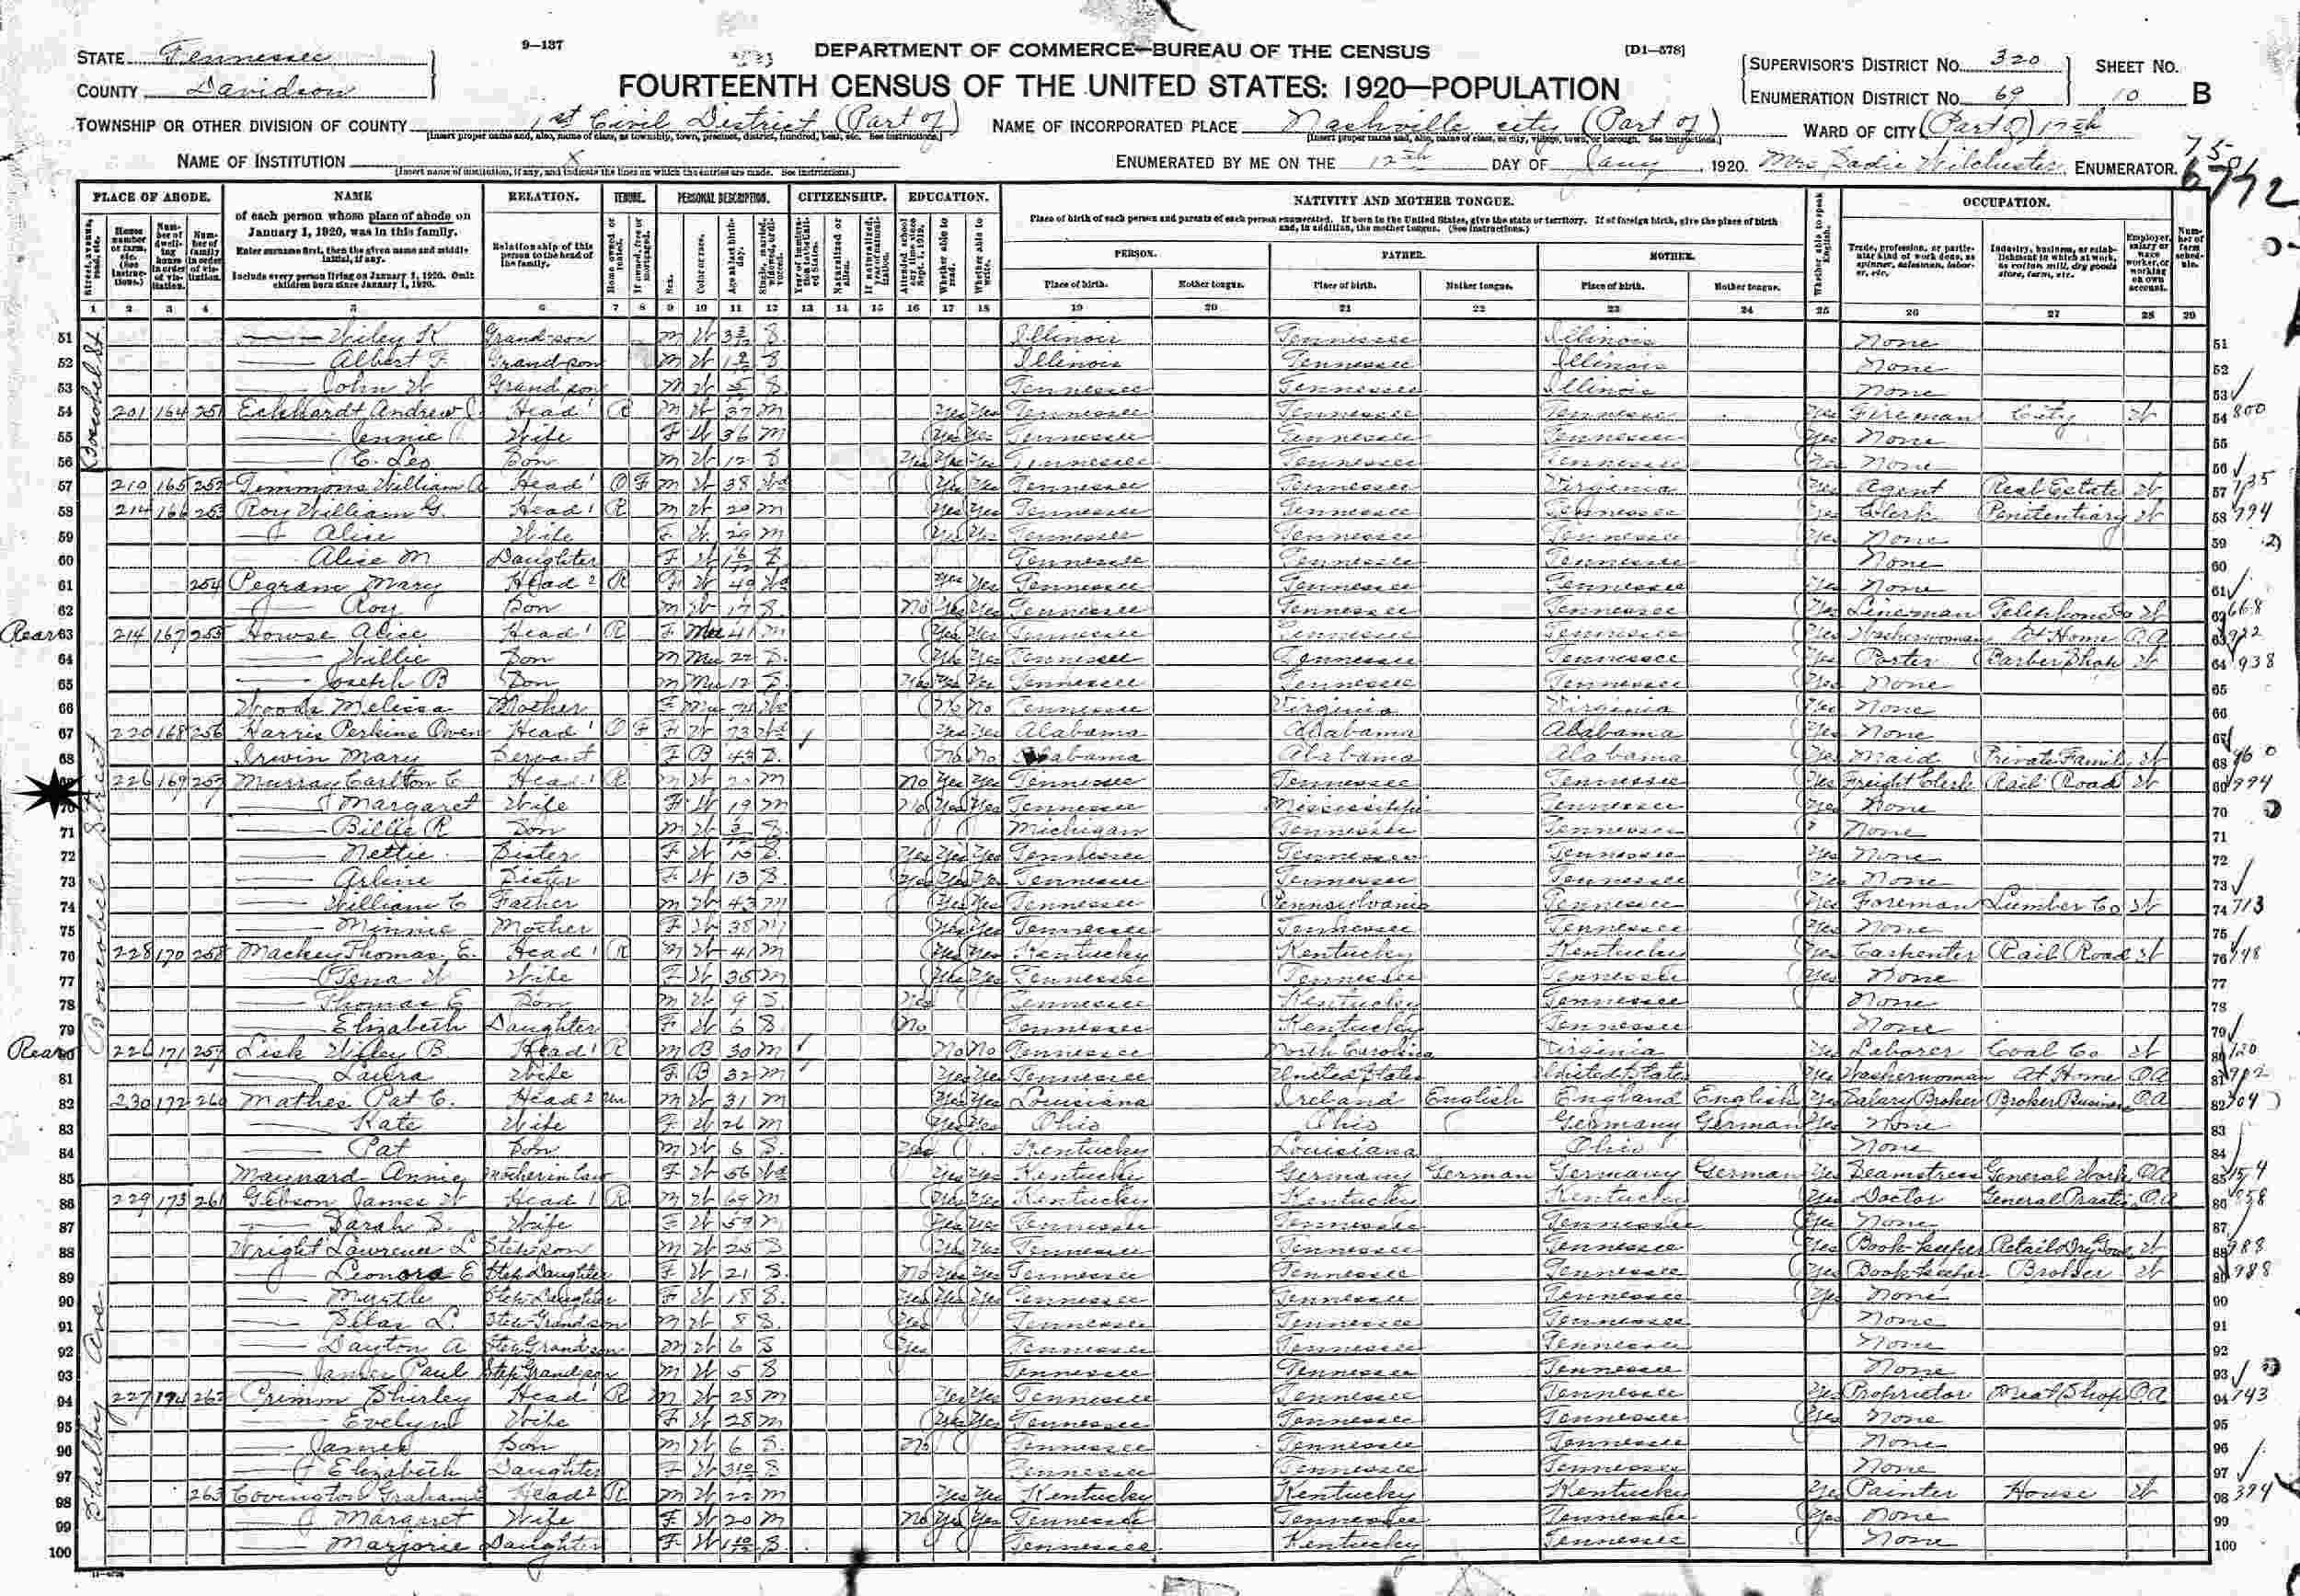 9-137
DEPARTMENT OF COMMERCE—BUREAU OF THE CENSUS
[D1-578]
FOURTEENTH CENSUS OF THE UNITED STATES: 1920—POPULATION
STATE Tennessee
COUNTY Davidson
SUPERVISOR'S DISTRICT No. 320
ENUMERATION DISTRICT No. 69
SHEET No. 10 B
TOWNSHIP OR OTHER DIVISION OF COUNTY 1st Civil District (Part of)
NAME OF INCORPORATED PLACE Nashville city (Part of)
WARD OF CITY (Part of) 17th
NAME OF INSTITUTION X
ENUMERATED BY ME ON THE 12th DAY OF Jany, 1920. Mrs Sadie ENUMERATOR.
PLACE OF ABODE. NAME RELATION. TENURE. PERSONAL DESCRIPTION. CITIZENSHIP. EDUCATION. NATIVITY AND MOTHER TONGUE. OCCUPATION.
of each person whose place of abode on January 1, 1920, was in this family.
Enter surname first, then the given name and middle initial, if any.
Include every person living on January 1, 1920. Omit children born since January 1, 1920.
Relationship of this person to the head of the family.
Place of birth of each person and parents of each person enumerated. If born in the United States, give the state or territory. If of foreign birth, give the place of birth and, in addition, the mother tongue. (See instructions.)
PERSON. FATHER. MOTHER.
Place of birth. Mother tongue. Place of birth. Mother tongue. Place of birth. Mother tongue.
1 2 3 4 5 6 7 8 9 10 11 12 13 14 15 16 17 18 19 20 21 22 23 24 25 26 27 28 29
51 Wiley K Grand-son M W 3 S Illinois Tennessee Illinois None 51
52 Albert F. Grand-son M W 1 S Illinois Tennessee Illinois None 52
53 John W Grand son M W S Tennessee Tennessee Illinois None 53
54 201 164 251 Eckhardt Andrew Head 1 R M W 37 M Yes Yes Tennessee Tennessee Tennessee Yes Fireman City W 54 800
55 Jennie Wife F W 36 M Yes Yes Tennessee Tennessee Tennessee Yes None 55
56 C. Leo Son M W 12 S Yes Yes Yes Tennessee Tennessee Tennessee Yes None 56
57 210 165 252 Timmons William A Head 1 O F M W 38 Wd Yes Yes Tennessee Tennessee Virginia Yes Agent Real Estate W 57 735
58 214 166 253 Roy William G. Head 1 R M W 29 M Yes Yes Tennessee Tennessee Tennessee Yes Clerk Penitentiary W 58 794
59 Alice Wife F W 29 M Yes Yes Tennessee Tennessee Tennessee Yes None 59
60 Alice M Daughter F W 1 S Tennessee Tennessee Tennessee None 60
61 254 Pegram Mary Head 2 R F W 49 Wd Yes Yes Tennessee Tennessee Tennessee Yes None 61
62 Roy Son M W 17 S No Yes Yes Tennessee Tennessee Tennessee Yes Lineman Telephone Co W 62 668
Rear 63 214 167 255 Howse Alice Head 1 R F Mu 41 M Yes Yes Tennessee Tennessee Tennessee Yes Washerwoman At Home OA 63 922
64 Willie Son M Mu 22 S Yes Yes Tennessee Tennessee Tennessee Yes Porter Barber Shop W 64 938
65 Joseph B Son M Mu 12 S Yes Yes Yes Tennessee Tennessee Tennessee Yes None 65
66 Woods Melissa Mother F Mu Wd No No Tennessee Virginia Virginia Yes None 66
67 220 168 256 Harris Perkins Owen Head 1 O F F W 73 Wd Yes Yes Alabama Alabama Alabama Yes None 67
68 Irwin Mary Servant F B 43 D. No No Alabama Alabama Alabama Yes Maid Private Family W 68 960
69 226 169 257 Murray Carlton C Head 1 R M W M No Yes Yes Tennessee Tennessee Tennessee Yes Freight Clerk Rail Road W 69 994
70 Margaret Wife F W 19 M No Yes Yes Tennessee Mississippi Tennessee Yes None 70
71 Billie R Son M W S Michigan Tennessee Tennessee None 71
72 Nettie Sister F W 15 S Yes Yes Yes Tennessee Tennessee Tennessee Yes None 72
73 Arline Sister F W 13 S Yes Yes Yes Tennessee Tennessee Tennessee Yes None 73
74 William C Father M W 43 M Yes Yes Tennessee Pennsylvania Tennessee Yes Foreman Lumber Co W 74 713
75 Minnie Mother F W 38 M Yes Yes Tennessee Tennessee Tennessee Yes None 75
76 228 170 258 Mackey Thomas E. Head 1 R M W 41 M Yes Yes Kentucky Kentucky Kentucky Yes Carpenter Rail Road W 76 748
77 Tena W Wife F W 35 M Yes Yes Tennessee Tennessee Tennessee Yes None 77
78 Thomas E Son M W 9 S Yes Tennessee Kentucky Tennessee None 78
79 Elizabeth Daughter F W 6 S No Tennessee Kentucky Tennessee None 79
Rear 80 226 171 259 Lisk Wiley B Head 1 R M B 30 M No No Tennessee North Carolina Virginia Yes Laborer Coal Co W 80 120
81 Laura Wife F B 32 M Yes Yes Tennessee United States United States Yes Washerwoman At Home OA 81 922
82 230 172 260 Mathes Pat C. Head 2 Un M W 31 M Yes Yes Louisiana Ireland English England English Yes Salary Broker Broker Business OA 82 704
83 Kate Wife F W 26 M Yes Yes Ohio Ohio Germany German Yes None 83
84 Pat Son M W 6 S Yes Kentucky Louisiana Ohio None 84
85 Maynard Annie Mother in Law F W 56 Wd Yes Yes Kentucky Germany German Germany German Yes Seamstress General Work OA 85
86 229 173 261 Gibson James W Head 1 R M W 69 M Yes Yes Kentucky Kentucky Kentucky Yes Doctor General Practice OA 86 858
87 Sarah S. Wife F W 59 M Yes Yes Tennessee Tennessee Tennessee Yes None 87
88 Wright Lawrence L Step-son M W 25 S Yes Yes Tennessee Tennessee Tennessee Yes Book-keeper Retail Dry Goods W 88 988
89 Leonora E Step Daughter F W 21 S No Yes Yes Tennessee Tennessee Tennessee Yes Book-keeper Broker W 89 988
90 Myrtle Step-Daughter F W 18 S Yes Yes Yes Tennessee Tennessee Tennessee Yes None 90
91 L. Step-Grandson M W 8 S Yes Tennessee Tennessee Tennessee None 91
92 Dayton A Step Grandson M W 6 S Yes Tennessee Tennessee Tennessee None 92
93 James Paul Step Grandson M W 5 S Tennessee Tennessee Tennessee None 93
94 227 174 262 Primm Shirley Head 1 R M W 28 M Yes Yes Tennessee Tennessee Tennessee Yes Proprietor Meat Shop OA 94 743
95 Evelyn Wife F W 28 M Yes Yes Tennessee Tennessee Tennessee Yes None 95
96 James Son M W 6 S No Tennessee Tennessee Tennessee None 96
97 Elizabeth Daughter F W 3 S Tennessee Tennessee Tennessee None 97
98 263 Covington Graham Head 2 R M W 22 M Yes Yes Kentucky Kentucky Kentucky Yes Painter House W 98 394
99 Margaret Wife F W 20 M No Yes Yes Tennessee Tennessee Tennessee Yes None 99
100 Marjorie Daughter F W 1 S Tennessee Kentucky Tennessee None 100
Boscobel St.
Boscobel Street
Shelby Ave